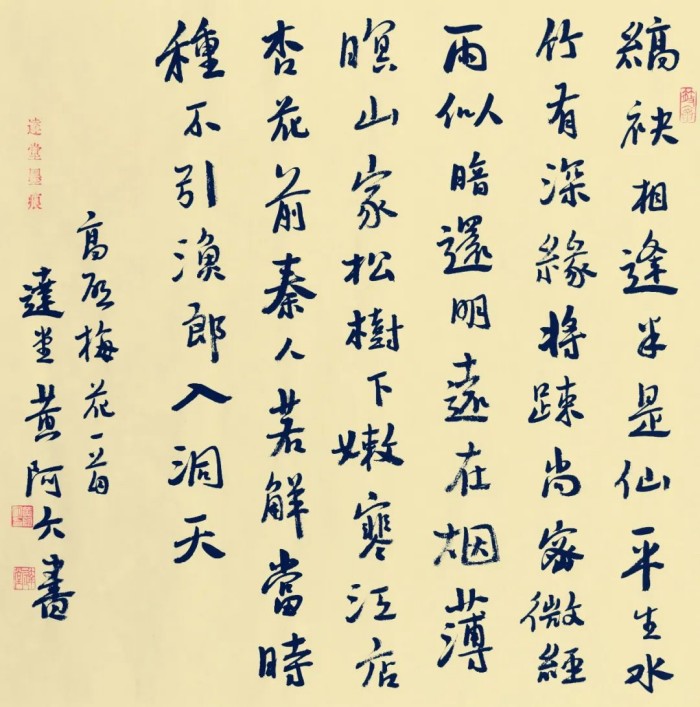 縞袂相逢半是仙平生水
竹有深緣將踈尚密微經
雨似暗還明遠在烟薄
暝山家松樹下嫩寒江店
杏花前秦人若解當時
種不引漁郎入洞天
高啟梅花一首
達堂黄阿六書
達堂墨痕